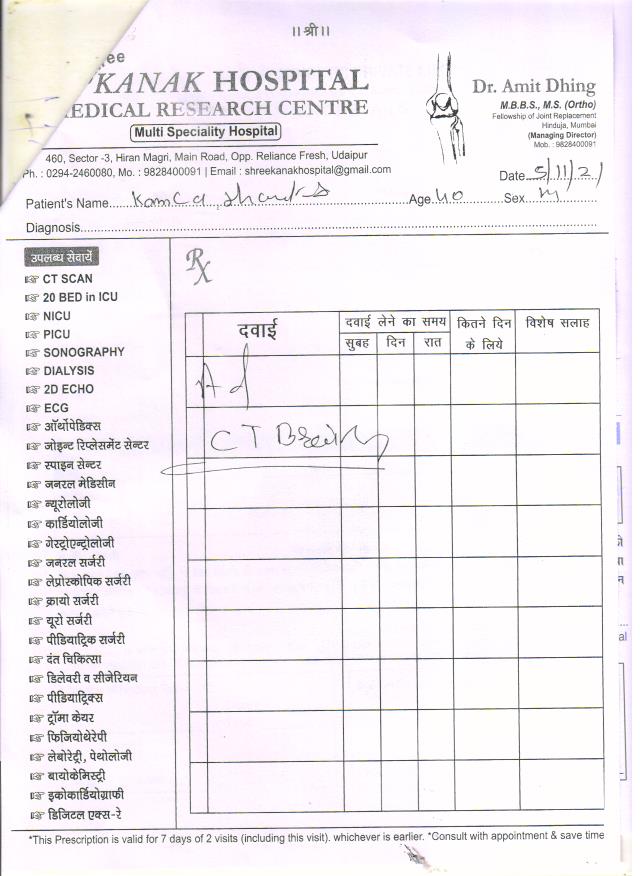 ।। श्री ।।
ee
KANAK HOSPITAL
EDICAL RESEARCH CENTRE
Multi Speciality Hospital
460, Sector -3, Hiran Magri, Main Road, Opp. Reliance Fresh, Udaipur
Ph. : 0294-2460080, Mo. : 9828400091 | Email : shreekanakhospital@gmail.com
Dr. Amit Dhing
M.B.B.S., M.S. (Ortho)
Fellowship of Joint Replacement
Hinduja, Mumbai
(Managing Director)
Mob. : 9828400091
Date 5/11/21
Patient's Name Age 40 Sex M
Diagnosis
उपलब्ध सेवायें
CT SCAN
20 BED in ICU
NICU
PICU
SONOGRAPHY
DIALYSIS
2D ECHO
ECG
ऑर्थोपेडिक्स
जोइन्ट रिप्लेसमेंट सेन्टर
स्पाइन सेन्टर
जनरल मेडिसीन
न्यूरोलोजी
कार्डियोलोजी
गेस्ट्रोएन्ट्रोलोजी
जनरल सर्जरी
लेप्रोस्कोपिक सर्जरी
क्रायो सर्जरी
यूरो सर्जरी
पीडियाट्रिक सर्जरी
दंत चिकित्सा
डिलेवरी व सीजेरियन
पीडियाट्रिक्स
ट्रॉमा केयर
फिजियोथेरेपी
लेबोरेट्री, पेथोलोजी
बायोकेमिस्ट्री
इकोकार्डियोग्राफी
डिजिटल एक्स-रे
Rx
दवाई
दवाई लेने का समय
सुबह दिन रात
कितने दिन
के लिये
विशेष सलाह
Ad
CT Brain
*This Prescription is valid for 7 days of 2 visits (including this visit). whichever is earlier. *Consult with appointment & save time